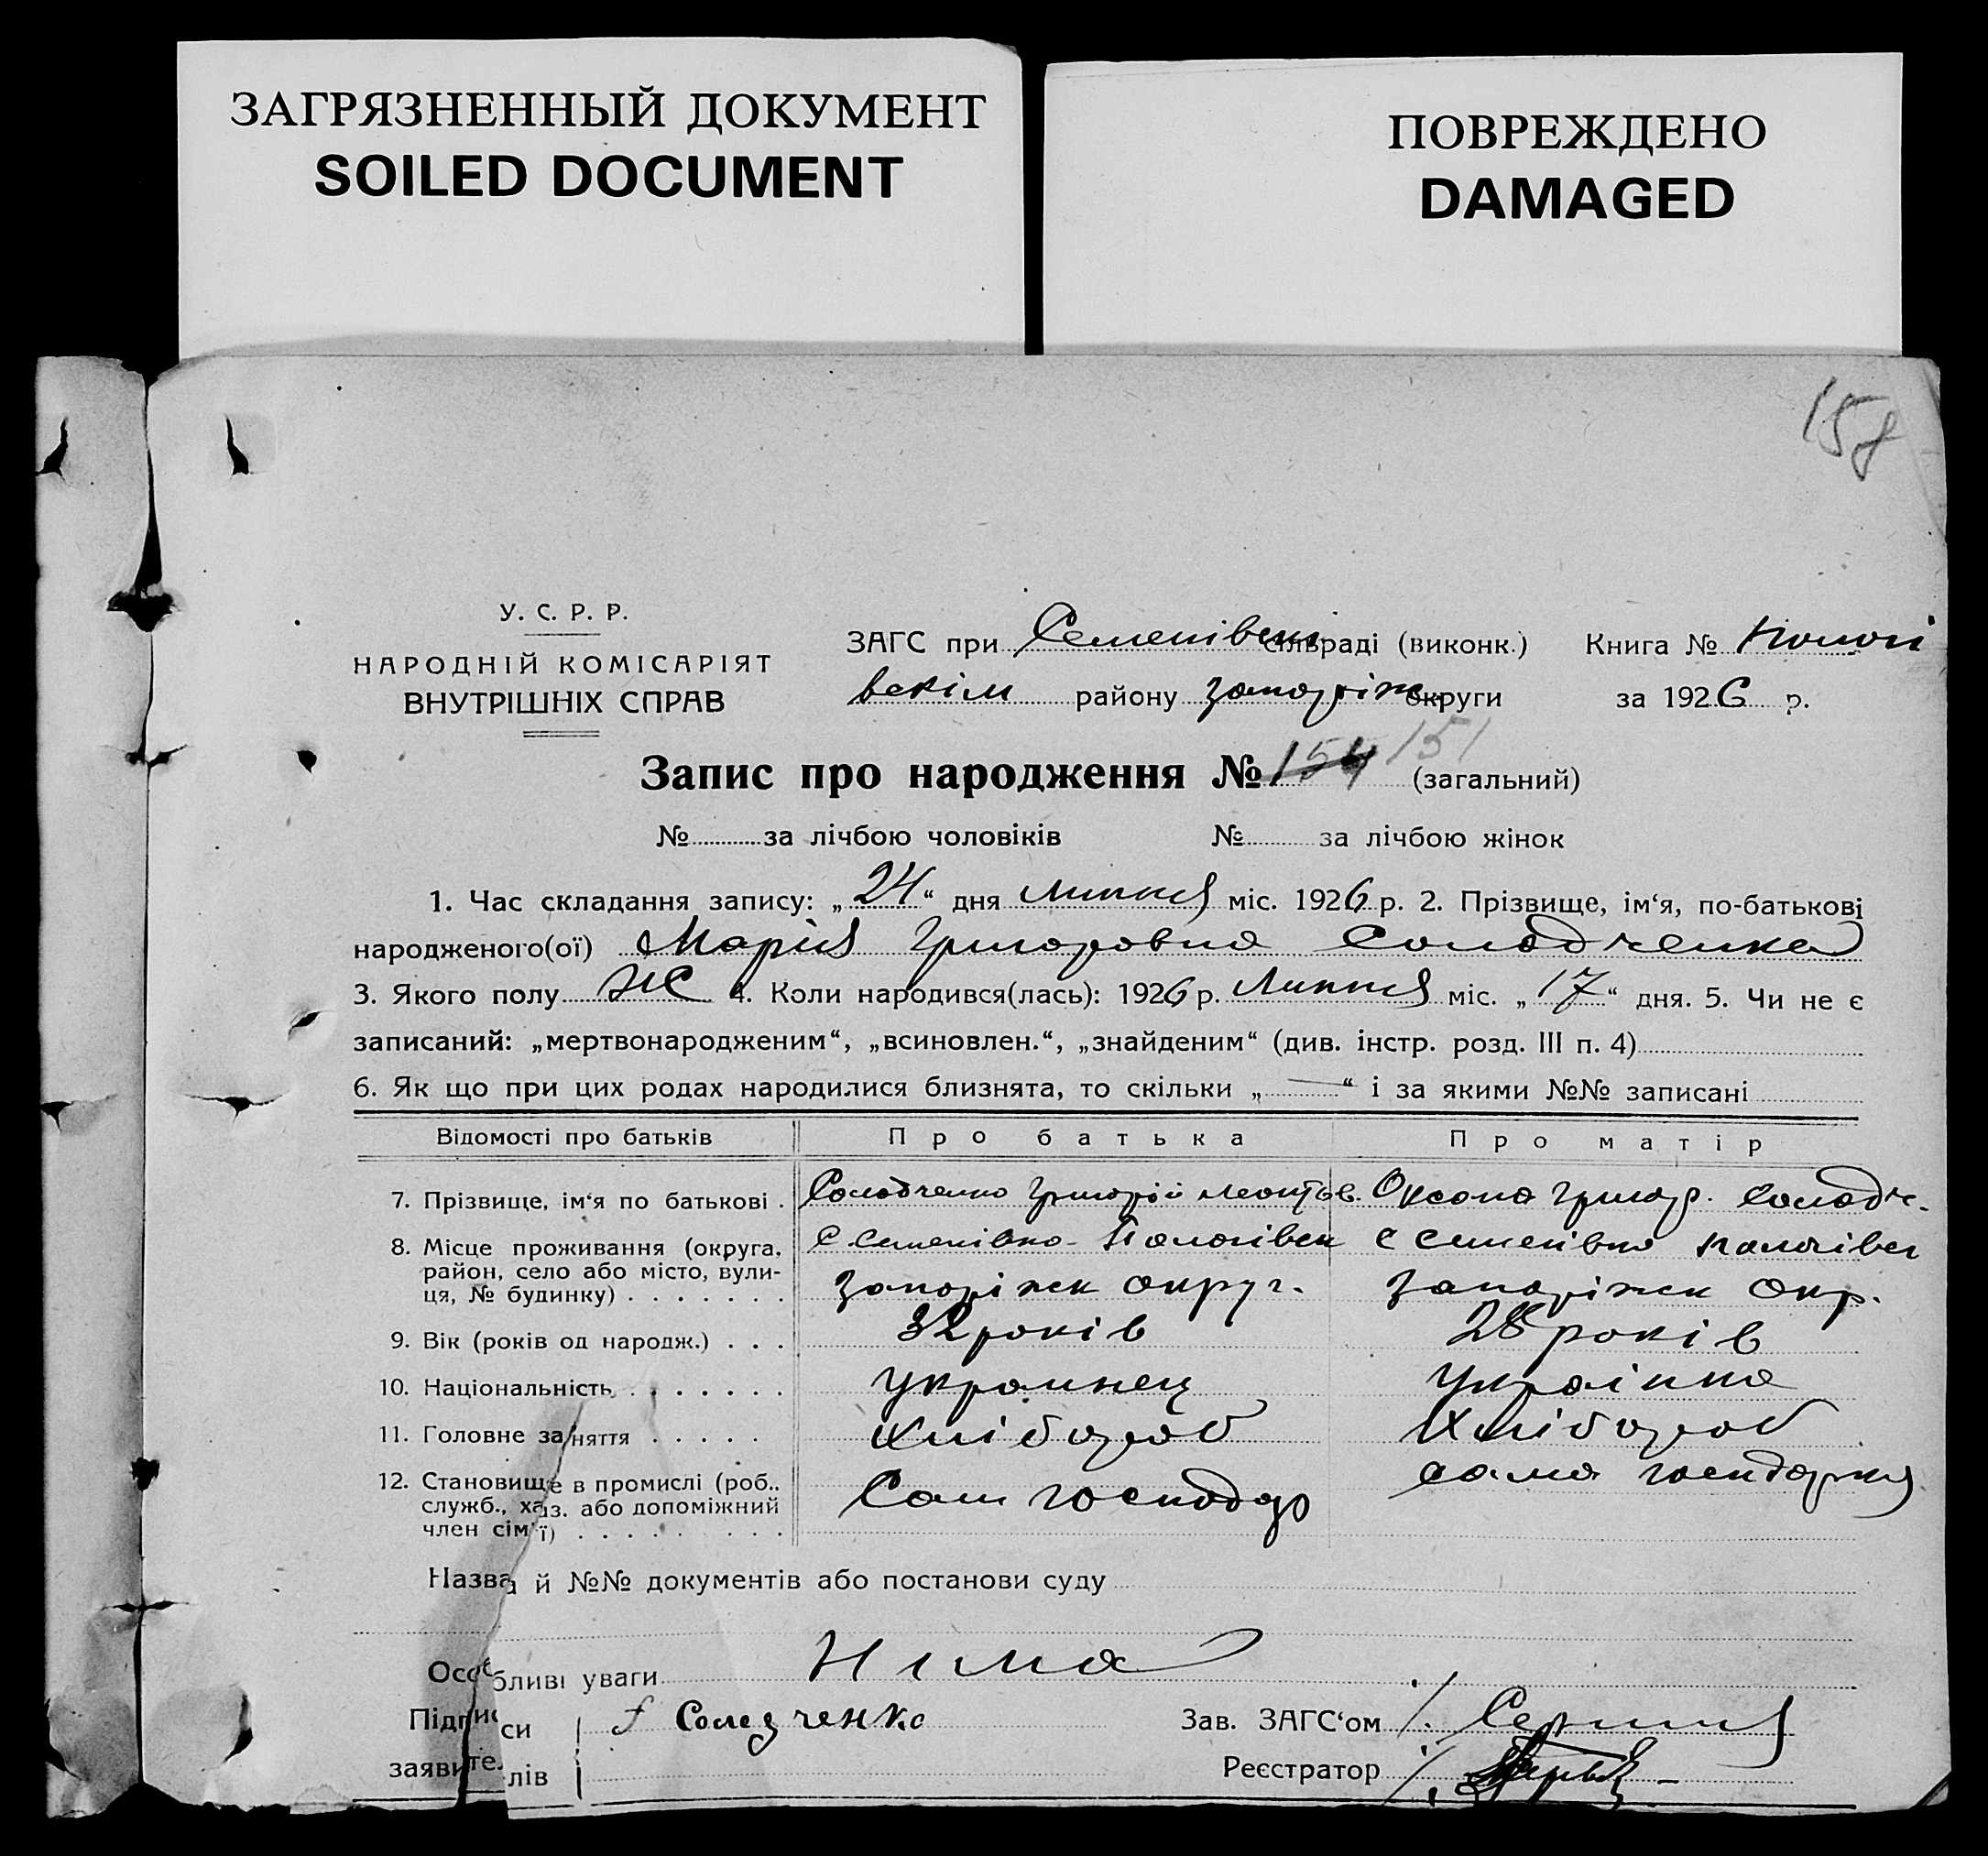 ЗАГРЯЗНЕННЫЙ ДОКУМЕНТ
SOILED DOCUMENT
ПОВРЕЖДЕНО
DAMAGED
158
У. С. Р. Р.
НАРОДНІЙ КОМІСАРІЯТ
ВНУТРІШНІХ СПРАВ
ЗАГС при Семенівськ сільраді (виконк.) Книга №
району Запоріж округи за 1926 р.
Запис про народження № 154 151 (загальний)
№ за лічбою чоловіків № за лічбою жінок
1. Час складання запису: „24“ дня Липня міс. 1926 р. 2. Прізвище, ім‘я, по-батькові
народженого(ої) Марія Григоровна Солодченко
3. Якого полу Ж 4. Коли народився(лась): 1926 р. Липня міс. „17“ дня. 5. Чи не є
записаний: „мертвонародженим“, „всиновлен.“, „знайденим“ (див. інстр. розд. III п. 4)
6. Як що при цих родах народилися близнята, то скільки „—“ і за якими №№ записані
Відомості про батьків Про батька Про матір
7. Прізвище, ім‘я по батькові . Солодченко Григорій Леонтьев. Оксана Григор. Солодч.
8. Місце проживання (округа, с. Семенівка Пологівськ с Семенівка Пологівськ
район, село або місто, вули-
ця, № будинку) . . . . . . . Запоріжск округ. Запоріжск Окр.
9. Вік (років од народж.) . . . 32 років 28 років
10. Національність . . . . . . . украинец Українка
11. Головне заняття . . . . . Хлібороб Хлібороб
12. Становище в промислі (роб., Сам господар сама господарка
служб., хаз. або допоміжний
член сім‘ї) . . . . . . . . .
Назва й №№ документів або постанови суду
Особливі уваги Нима
Підписи Солодченко Зав. ЗАГС‘ом
заявителів Реєстратор